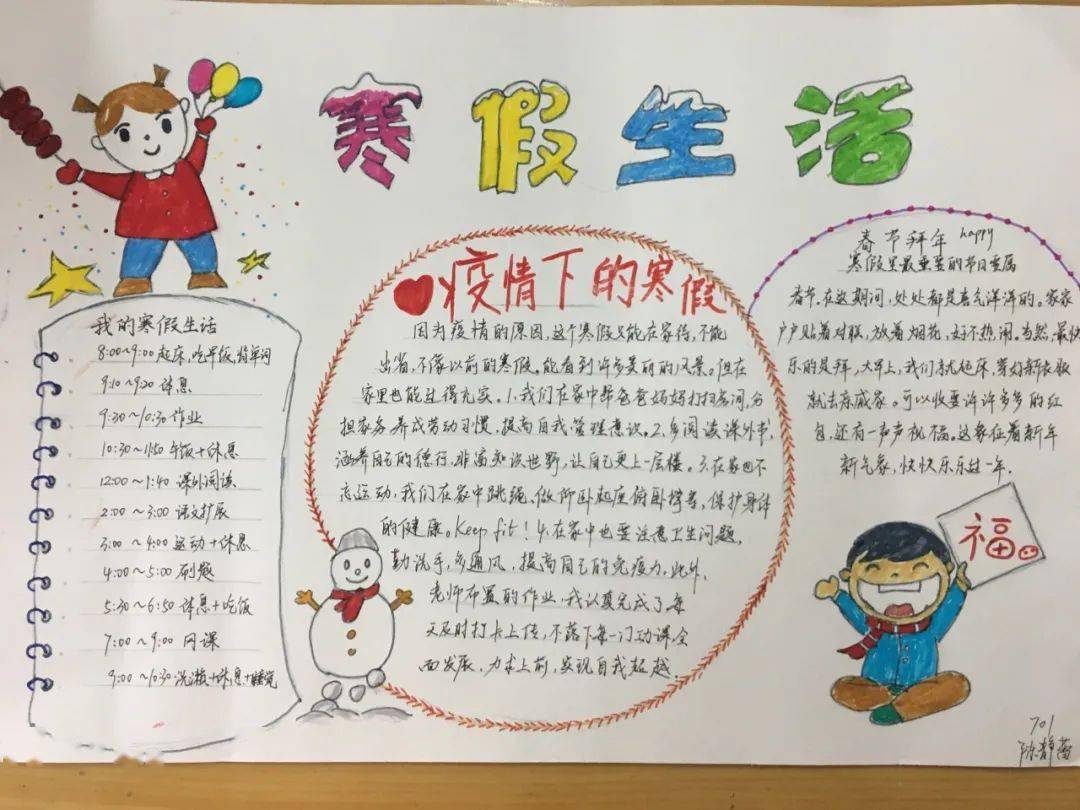 寒假生活
我的寒假生活
8:00~9:00 起床,吃早饭,背单词
9:10~9:20 休息
9:30~10:30 作业
10:30~11:50 午饭+休息
12:00~1:40 课外阅读
2:00~3:00 语文扩展
3:00~4:00 运动+休息
4:00~5:00 刷题
5:30~6:50 休息+吃饭
7:00~9:00 网课
9:00~10:30 洗漱+休息+睡觉
疫情下的寒假
因为疫情的原因,这个寒假只能在家待,不能
出省,不像以前的寒假,能看到许多美丽的风景。但在
家里也能过得充实。1.我们在家中帮爸爸妈妈打扫房间,分
担家务,养成劳动习惯,提高自我管理意识。2.多阅读课外书,
涵养自己的德行,丰富知识世野,让自己更上一层楼。3.在家也不
忘运动,我们在家中跳绳,做仰卧起座俯卧撑等,保护身体
的健康。Keep fit!4.在家中也要注意卫生问题,
勤洗手,多通风,提高自己的免疫力,此外,
老师布置的作业,我认真完成了每
天及时打卡上传,不落下每一门功课,全
面发展,力求上前,实现自我超越.
春节拜年 happy
寒假里最重要的节日要属
春节,在这期间,处处都是喜气洋洋的。家家
户户贴着对联,放着烟花,好不热闹。当然,最快
乐的是拜,大早上,我们就起床,穿好新衣服
就去亲戚家。可以收要许许多多的红
包,还有一声声祝福。这象征着新年
新气象,快快乐乐过一年.
福
701